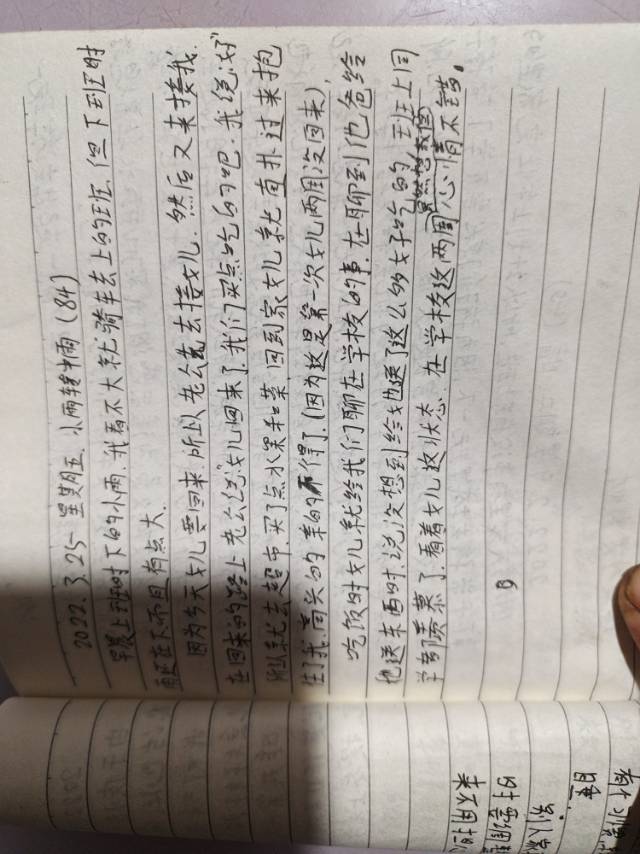 2022.3.25 星期五 小雨转中雨 (84)
早晨上班时下的小雨,我看不大就骑车去上的班,但下到班时
雨还在下而且有点大。
因为今天女儿要回来,所以老公先去接女儿,然后又来接我.
在回来的路上老公说:"女儿回来了,我们买点吃的吧.我说:"好"
所以就去超市,买了点水果和菜 回到家女儿就直扑过来抱
住了我,高兴的幸的不得了.(因为这是第一次女儿两周没回来)
吃饭时女儿就给我们聊在学校的事.在聊到他爸给
他送东西时,说没想到给她送了这么多好吃的,班上同
学都羡慕了.看着女儿这状态 在学校这两周心情不错。
有个
睡
别人
时